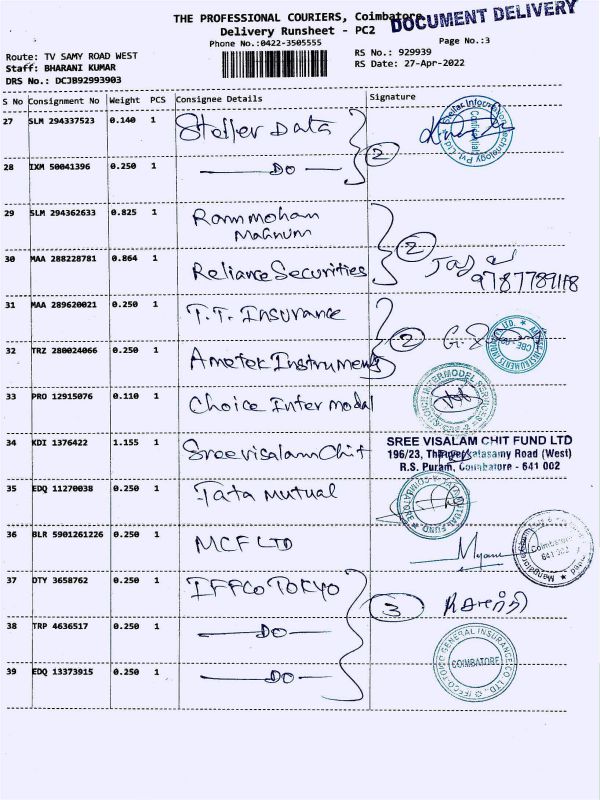 THE PROFESSIONAL COURIERS, Coimbatore
DOCUMENT DELIVERY
Delivery Runsheet - PC2
Phone No.:0422-3505555
Page No.:3
Route: TV SAMY ROAD WEST
RS No.: 929939
Staff: BHARANI KUMAR
RS Date: 27-Apr-2022
DRS No.: DCJB92993903
S No Consignment No Weight PCS Consignee Details Signature
27 SLM 294337523 0.140 1 Steller Data
28 IXM 50041396 0.250 1 DO 2
29 SLM 294362633 0.825 1 Rammohan
Magnum
30 MAA 288228781 0.864 1 Reliance Securities 2
9787789118
31 MAA 289620021 0.250 1 T.T. Insurance
32 TRZ 280024066 0.250 1 Ametek Instruments 2
33 PRO 12915076 0.110 1 Choice Inter modal
34 KDI 1376422 1.155 1 Sree visalam Chit
SREE VISALAM CHIT FUND LTD
196/23, Thiruvenkatasamy Road (West)
R.S. Puram, Coimbatore - 641 002
35 EDQ 11270038 0.250 1 Tata mutual
36 BLR 5901261226 0.250 1 MCF LTD
Coimbatore
641 002
37 DTY 3658762 0.250 1 IFFCO TOKYO 3
38 TRP 4636517 0.250 1 DO
39 EDQ 13373915 0.250 1 DO
IFFCO-TOKIO GENERAL INSURANCE CO LTD.
COIMBATORE